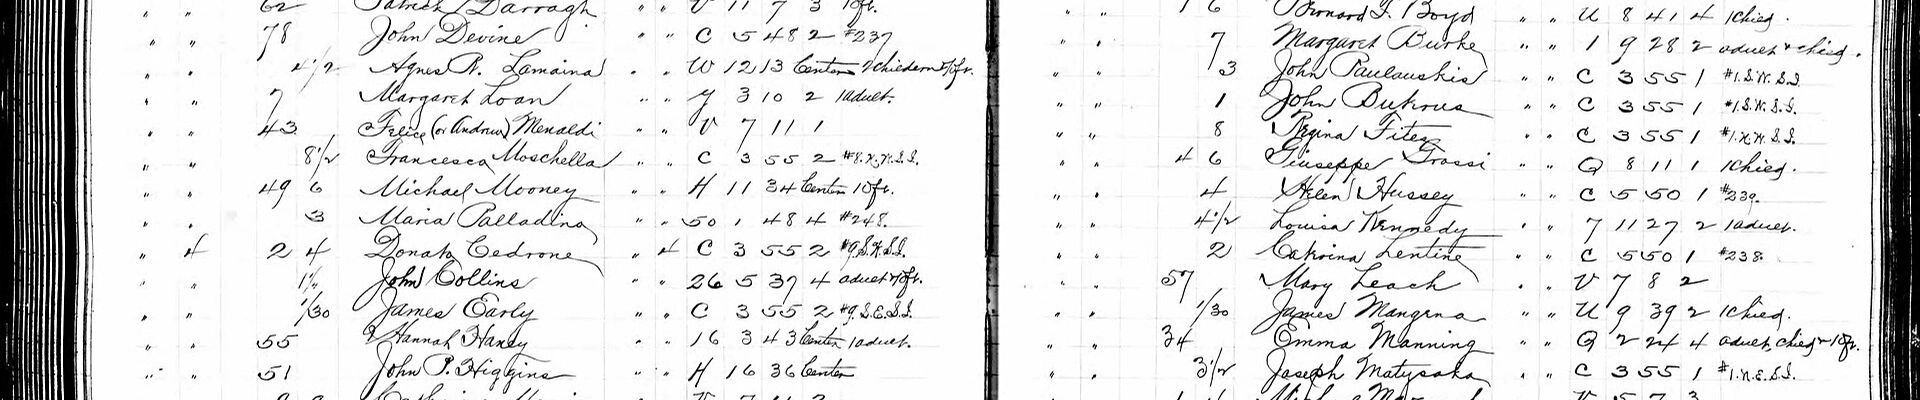 " " 62 Patrick Darragh " " V 11 7 3 10ft.
" " 78 John Devine " " C 5 48 2 #237
" " 4 1/2 Agnes R. Lamaina " " W 12 13 Center
" " 7 Margaret Loan " " Y 3 10 2 1 adult.
" " 43 Felice (or Andrew) Menaldi " " V 7 11 1
" " 8 1/2 Francesca Moschella " " C 3 55 2 #8.N.N.S.I.
" " 49 6 Michael Mooney " " H 11 34 Center 10ft.
" " 3 Maria Palladino " " 50 1 48 4 #248.
" 4 2 4 Donato Cedrone 4 C 3 55 2 #9.S.W.S.I.
" " John Collins " " 26 5 37 4 adult
" " 1/30 James Early " " C 3 55 2 #9.S.E.S.I.
" " 55 Hannah Haney " " 16 3 43 Center 1 adult.
" " 51 John P. Higgins " " H 16 36 Center
" " 6 Bernard F. Boyd " " U 8 41 4 1 child.
" " 7 Margaret Burke " " 1 9 28 2 adult & child.
" " 3 John Paulauskis " " C 3 55 1 #1.S.W.S.I.
" " 1 John Bukous " " C 3 55 1 #1.S.W.S.I.
" " 8 Regina Fitez " " C 3 55 1 #1.N.W.S.I.
" " 4 6 Giuseppe Grossi " " Q 8 11 1 1 child.
" " 4 Helen Hussey " " C 5 50 1 #239.
" " 4 1/2 Louisa Kennedy " " 7 11 27 2 1 adult.
" " 2 Catrina Lentine " " C 5 50 1 #238.
" " 57 Mary Leach " " V 7 8 2
" " 1/30 James Mangena " " U 9 39 2 1 child.
" " 34 Emma Manning " " Q 2 24 4 adult, child & 10ft.
" " 3 1/2 Joseph Matysaka " " C 3 55 1 #1.N.E.S.I.